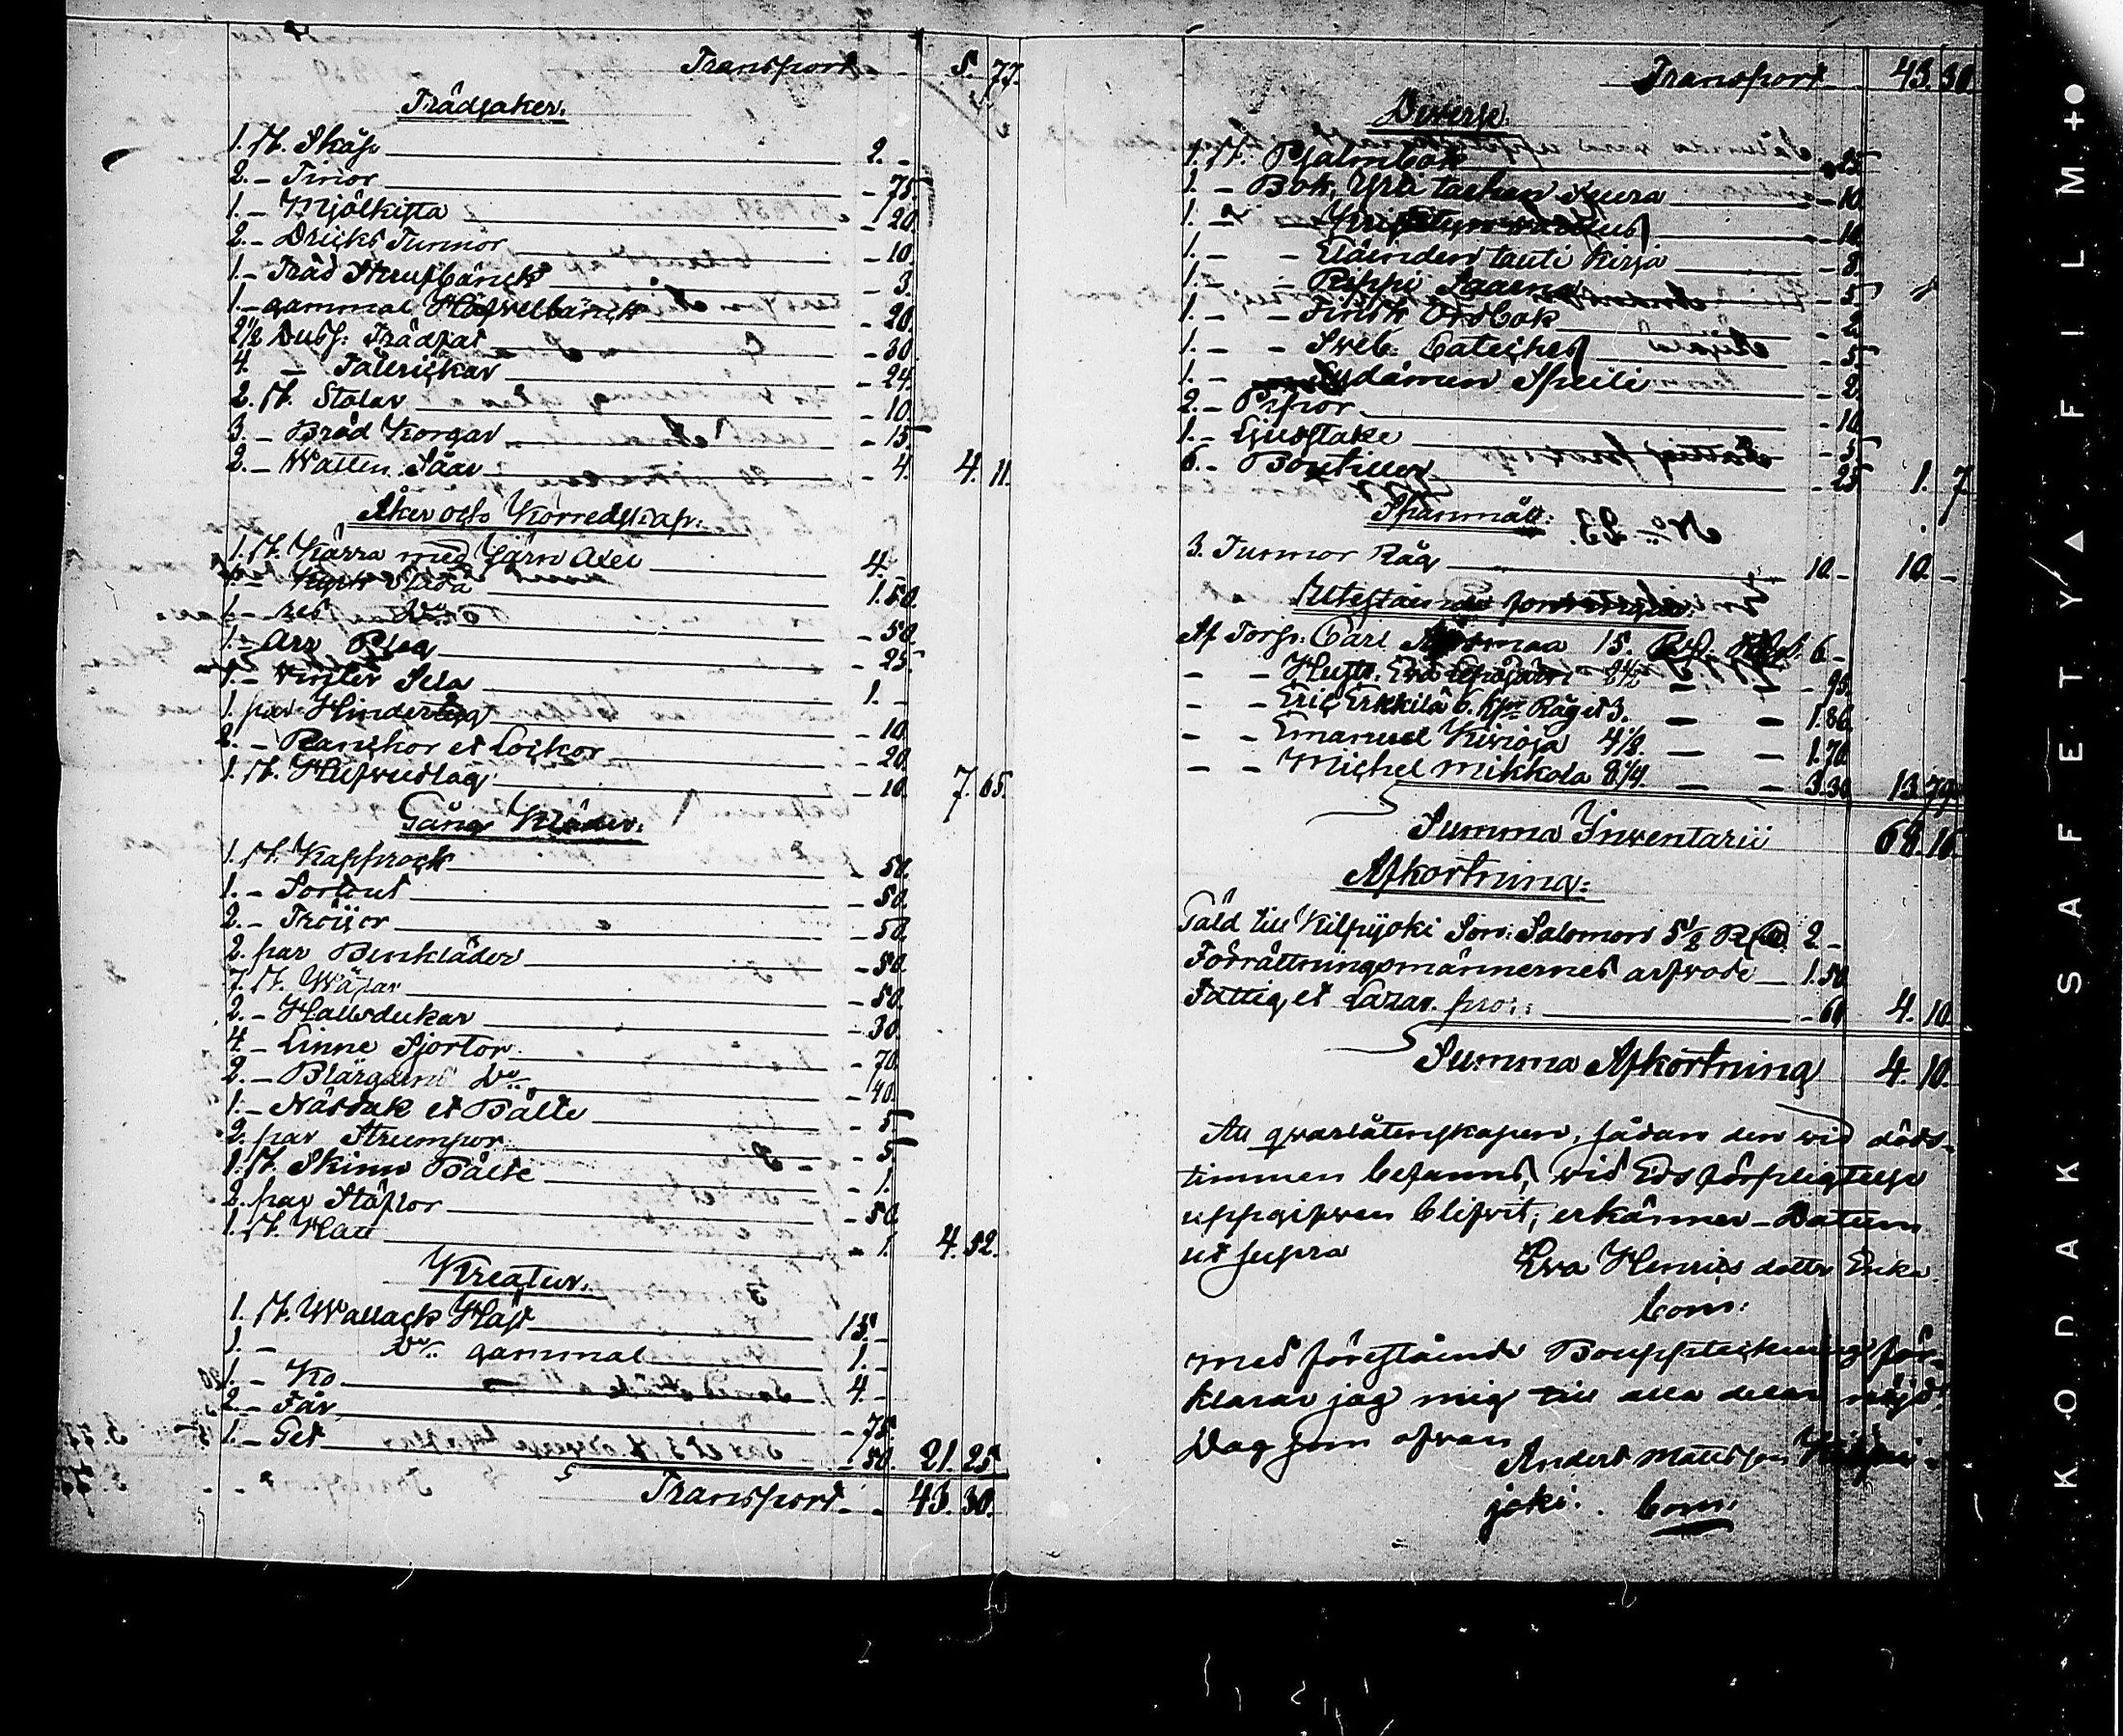 Transport 5. 77.
Trädsaker.
1. st. Skåp 2. -
2. - Tinor - 75.
1. - Mjölkista - 20.
2. - Dricks Tunnor - 10.
1. - Träd - 3.
1. - gammal - 20.
2½ Duss: Trädfat - 30.
4. - Tallrickar - 24.
2. st. Stolar - 10.
3. - Bröd Korgar - 15
2. - Watten Såar - 4. 4. 11.
Åker och Körredskap:
1. st. Kärra med Järn Axel 4. -
1. - Släda 1. 50.
1. - res Do - 50.
1. - Arr Plog - 25
1. - vinter Sela 1. -
1. par - 10.
2. - Ranckor et Lockor - 20.
1. st. Hufvudlag - 10. 7. 65.
Gång Kläder:
1. st. Kapprock - 50.
1. - Sortout - 50.
2. - Tröijor - 50.
2. par Benkläder - 50.
7. st. Wästar - 50.
2. - Halsdukar - 30.
4. - Linne Sjortor - 70.
2. - Blärgarns Do - 40.
1. - Näsduk et Bälte - 5
2. par Strumpor - 5.
1. st. Skinn Bälte - 1.
2. par Stöflor - 50.
1. st. Hatt - 1. 4. 52.
Kreatur.
1. st. Wallack Häst 15. -
1. - Do gammal 1. -
1. - Ko 4. -
2. - Får - 75
1. - Get - 50. 21. 25
Transport 43. 30.
Transport 43. 30
Diverse
1. st. Psalmbok - 25
1. - Bok, Yxi taehen Seura - 10.
1. - - 10
1. - - Eläinden tauti Kirja - 8.
1. - - Rippi Saarna - 5
1. - - Finsk Ordbok
1. - - Sveb. Cateches - 5
1. - Sydämen Speili - 2
2. - Pipor - 10
1. - Ljusstake - 5
6. - Boutiller - 25 1. 7
Spanmål:
3. Tunnor Råg 10. - 10. -
Utestående fordringar:
Af Torp. Carl 15. 6 -
- - Eva - 95.
- - Eric Erkkilä 6. Råg et 3. — — 1. 86.
- - Emanuel Kirioja 4½. — — 1. 70.
- - Michel Mikkola 8¼. — — 3. 30 13. 79.
Summa Inventarii 68. 16.
Afkortning:
Gäld till Kilpijoki Son: Salomon 5½ 2 -
Förrättningsmännernes arfvode 1. 50
Fattig et Lazar. pro:: - 60 4. 10.
Summa Afkortning 4. 10.
At qvarlåtenskapen, sådan den vid döds-
timmen befanns, vid Eds förpligtelse
uppgifven blifvit; erkänner - Datum
ut supra Eva Henrics dotter Enka
bom:
med förestående Bouppteckning för-
klarar jag mig till alla delar nöjd.
Dag som ofvan
Anders Mattsson
joki. bom:
KODAK SAFETY FILM